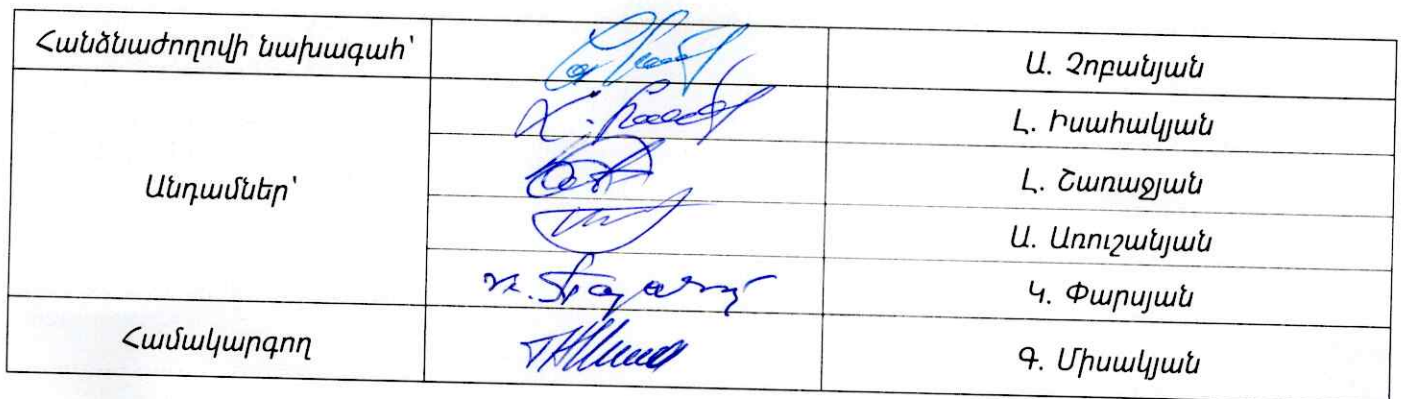 Հանձնաժողովի նախագահ՝ Ա. Չոբանյան
Լ. Իսահակյան
Անդամներ՝ Լ. Շառաջյան
Ա. Առուշանյան
Կ. Փարսյան
Համակարգող Գ. Միսակյան